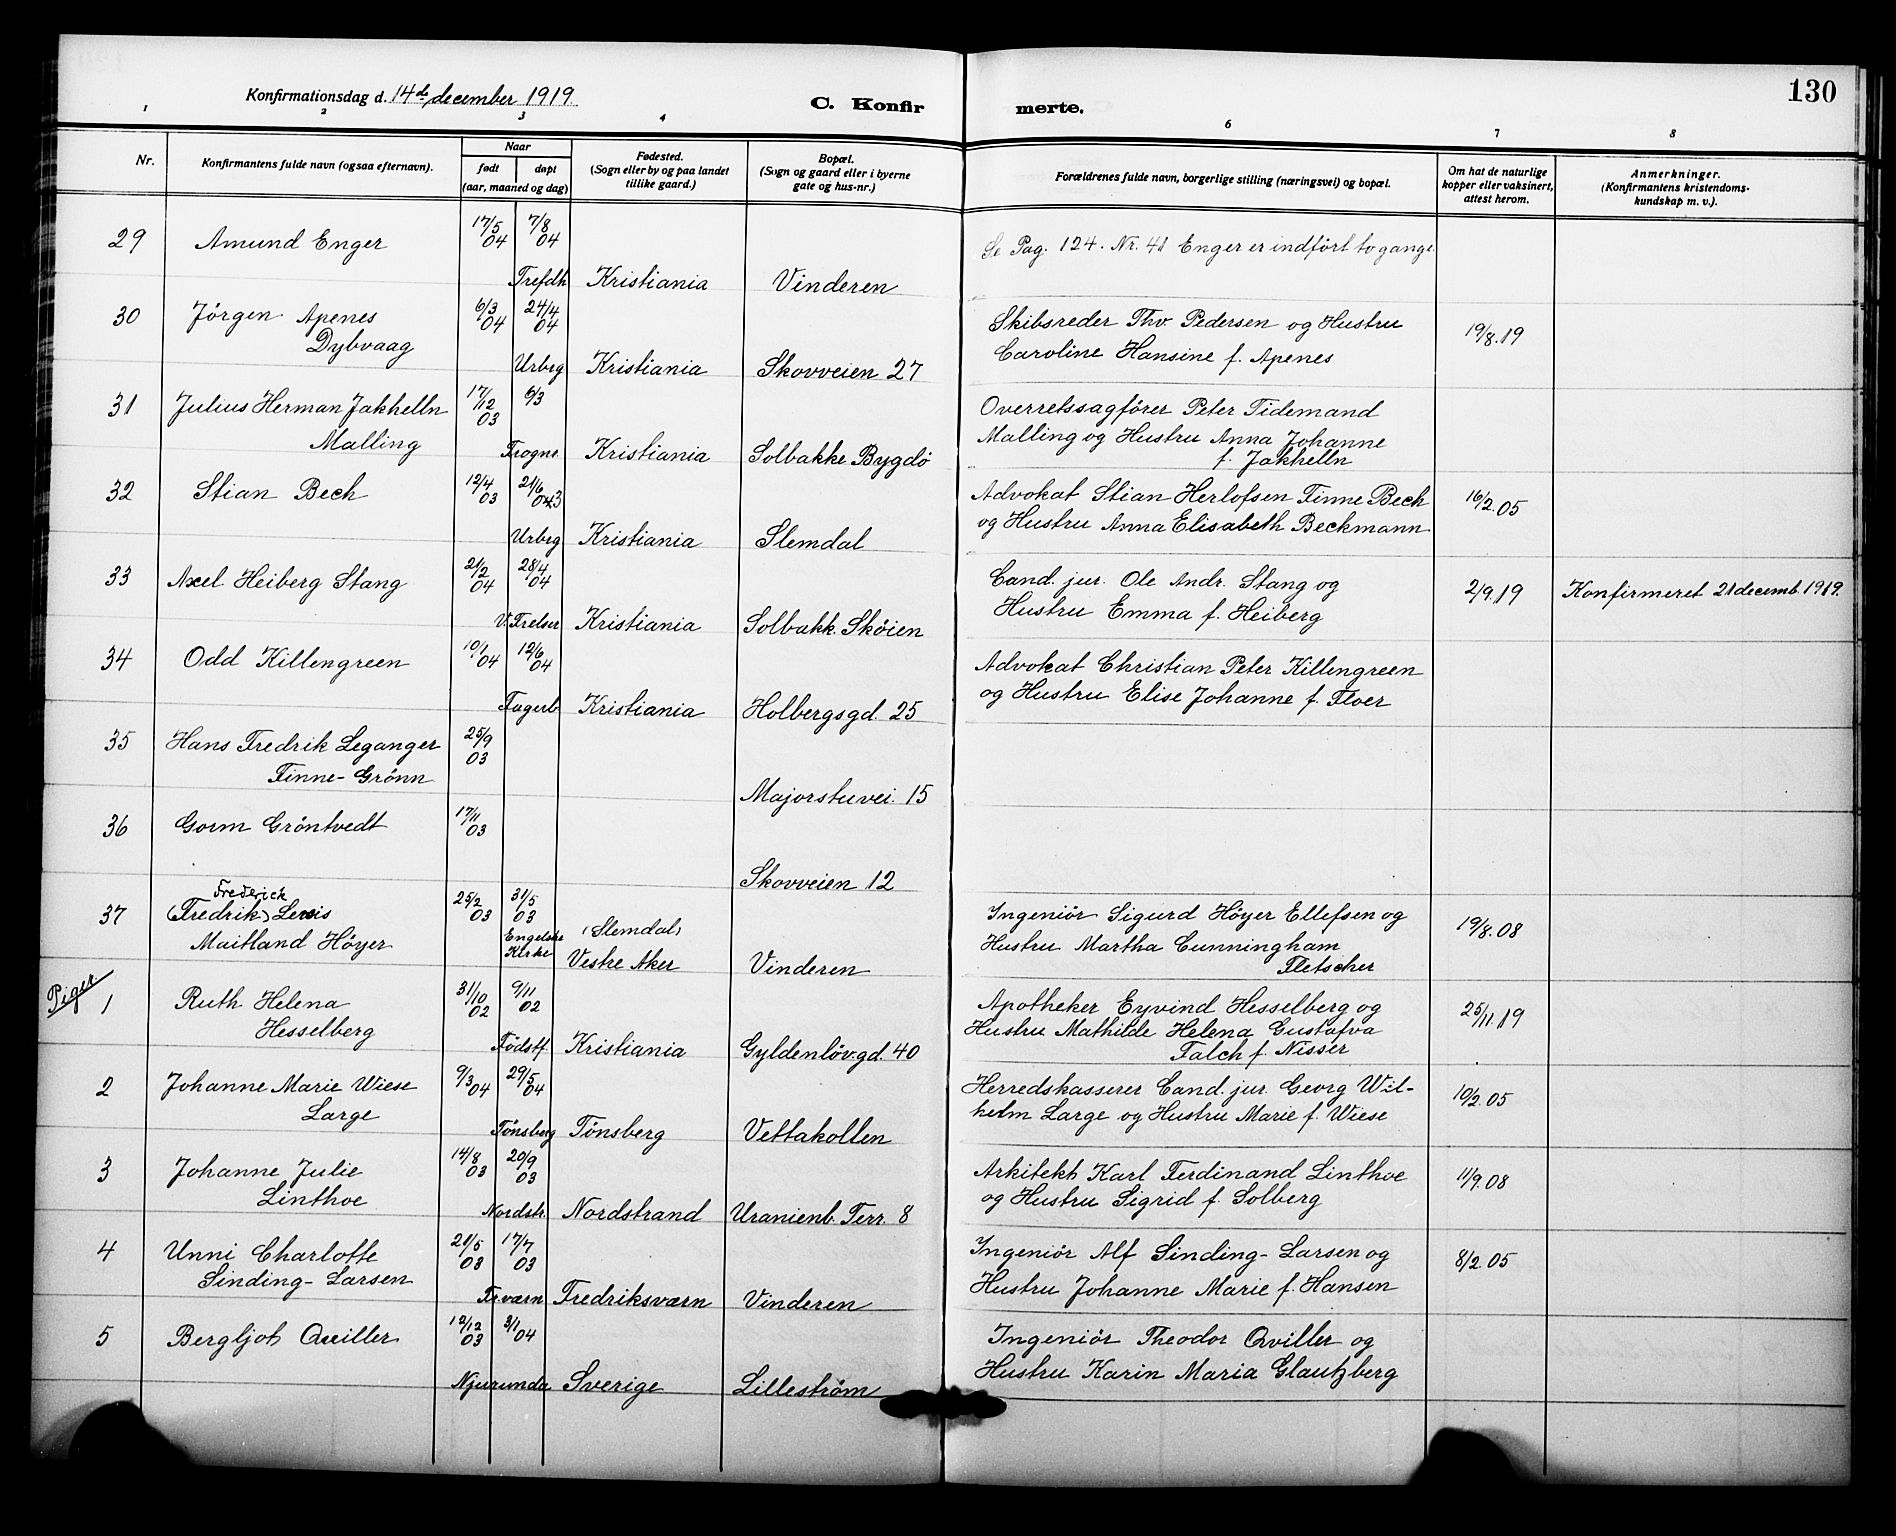 130
Konfirmationsdag d. 14de december 1919
C. Konfirmerte.
1 2 3 4 6 7 8
Nr.
Konfirmantens fulde navn (ogsaa efternavn).
Naar
født døpt
(aar, maaned og dag)
Fødested.
(Sogn eller by og paa landet
tillike gaard.)
Bopæl.
(Sogn og gaard eller i byerne
gate og hus-nr.)
Forældrenes fulde navn, borgerlige stilling (næringsvei) og bopæl.
Om hat de naturlige
kopper eller vaksinert,
attest herom.
Anmerkninger.
(Konfirmantens kristendoms-
kundskap m. v.).
29 Amund Enger 17/5 04 7/8 04 Se Pag. 124. Nr. 41 Enger er indført to gange.
Trefdh Kristiania Vinderen
30 Jörgen Apenes 6/3 04 24/4 04 Skibsreder Thv. Pedersen og Hustru 19/8.19
Dybvaag Caroline Hansine f. Apenes
Urbrg Kristiania Skovveien 27
31 Julius Herman Jakhelln 17/12 03 6/3 Overretssagförer Peter Tidemand
Malling Malling og Hustru Anna Johanne
Frogne. Kristiania Solbakke Bygdö f. Jakhelln
32 Stian Bech 12/4 03 21/6 03 Advokat Stian Herlofsen Finne Bech 16/2.05
og Hustru Anna Elisabeth Beckmann
Urbrg Kristiania Slemdal
33 Axel Heiberg Stang 21/2 04 28/4 04 Cand. jur. Ole Andr. Stang og 2/9.19 Konfirmeret 21 decemb. 1919.
Hustru Emma f. Heiberg
V. Frelser Kristiania Solbakk. Sköien
34 Odd Killengreen 10/1 04 12/6 04 Advokat Christian Peter Killengreen
og Hustru Elise Johanne f. Floer
Fagerb Kristiania Holbergsgd. 25
35 Hans Fredrik Leganger 25/9 03
Finne-Grönn
Majorstuvei. 15
36 Gorm Gröntvedt 17/11 03
Skovveien 12
Frederick
37 (Fredrik) Lewis 25/2 03 31/5 03 Ingeniör Sigurd Höyer Ellefsen og 19/8.08
Maitland Höyer Engelske Kirke (Slemdal) Hustru Martha Cunningham
Vestre Aker Vinderen Fletscher
Piger
1 Ruth Helena 31/10 02 9/11 02 Apotheker Eyvind Hesselberg og 25/11.19
Hesselberg Hustru Mathilde Helena Gustafva
Födstf. Kristiania Gyldenlöv.gd. 40 Falch f. Nisser
2 Johanne Marie Wiese 9/3 04 29/5 04 Herredskasserer Cand. jur. Georg Wil- 10/2.05
Large helm Large og Hustru Marie f. Wiese
Tönsberg Tönsberg Vettakollen
3 Johanne Julie 14/8 03 20/9 03 Arkitekt Karl Ferdinand Linthoe 11/9.08
Linthoe og Hustru Sigrid f. Solberg
Nordstr. Nordstrand Uranienb. Terr. 8
4 Unni Charlotte 21/5 03 17/7 03 Ingeniör Alf Sinding-Larsen og 8/2.05
Sinding-Larsen Hustru Johanne Marie f. Hansen
Fr værn Fredriksværn Vinderen
5 Bergljot Qviller 12/12 03 3/1 04 Ingeniör Theodor Qviller og
Hustru Karin Maria Glautzberg
Njurunda Sverige Lilleström